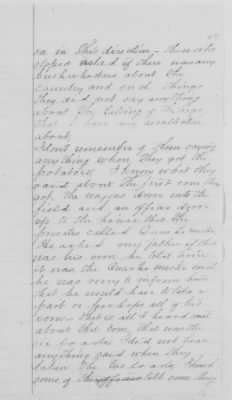 on in this direction - them who
stoped asked if there was any
bushwhackers about the
country and such things
they did not say any thing
about the taking of things
that I have any recollection
about.
I dont remember of them saying
anything when they got the
potatoes. I know what they
said about the first corn they
got, the wagons drove into the
field and an officer drove
up to the house that the
privates called Quarter Master,
He asked my father if this
was his corn, he told him
it was the Quarter master said
he was sorry to inform him
that he would have to take a
part or perhaps all of his
corn - that is all I heard said
about the corn, that was the
six loads. I did not hear
anything said when they
taken the two loads I heard
some of the talk some thing